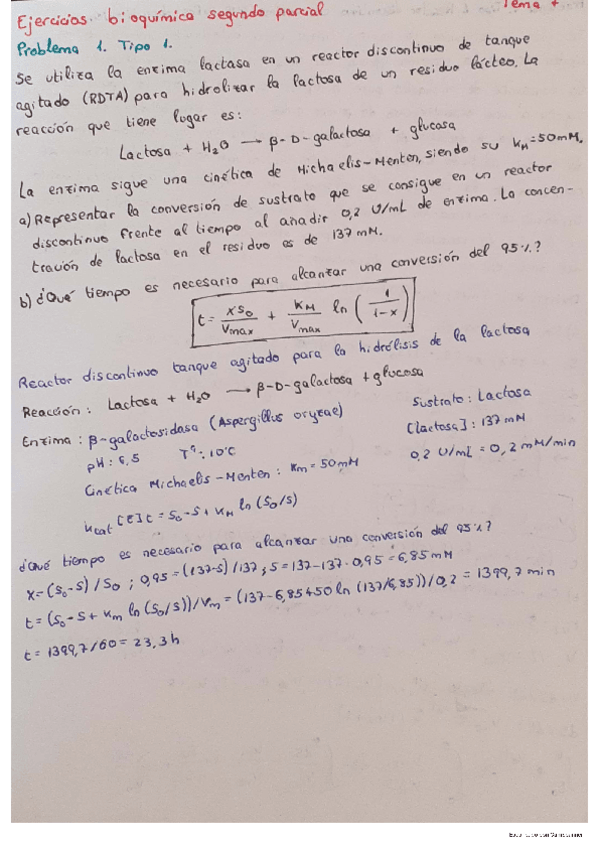 Tema 4
Ejercicios bioquímica segundo parcial
Problema 1. Tipo 1.
Se utiliza la enzima lactasa en un reactor discontinuo de tanque
agitado (RDTA) para hidrolizar la lactosa de un residuo lácteo. La
reacción que tiene lugar es:
Lactosa + H₂O → β-D-galactosa + glucosa
La enzima sigue una cinética de Michaelis-Menten, siendo su KM = 50mM.
a) Representar la conversión de sustrato que se consigue en un reactor
discontinuo frente al tiempo al añadir 0,2 U/mL de enzima. La concen-
tración de lactosa en el residuo es de 137 mM.
b) ¿Qué tiempo es necesario para alcanzar una conversión del 95%?
t = xS₀/Vmax + KM/Vmax ln (1/1-x)
Reactor discontinuo tanque agitado para la hidrólisis de la lactosa
Reacción: Lactosa + H₂O → β-D-galactosa + glucosa
Enzima: β-galactosidasa (Aspergillus oryzae)
Sustrato: Lactosa
pH: 6,5 Tª: 10°C
[Lactosa]: 137 mM
Cinética Michaelis-Menten: Km = 50mM
0,2 U/mL = 0,2 mM/min
Kcat [E] t = S₀ - S + KM ln (S₀/S)
¿Qué tiempo es necesario para alcanzar una conversión del 95%?
x = (S₀-S) / S₀ ; 0,95 = (137-S) / 137 ; S = 137-137·0,95 = 6,85 mM
t = (S₀ - S + Km ln (S₀/S)) / Vm = (137-6,85+50 ln (137/6,85)) / 0,2 = 1399,7 min
t = 1399,7/60 = 23,3 h